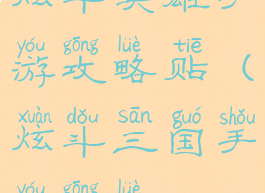 yóu gōng lüè tiē
游攻略贴（
xuàn dǒu sān guó shǒu
炫斗三国手
yóu gōng lüè